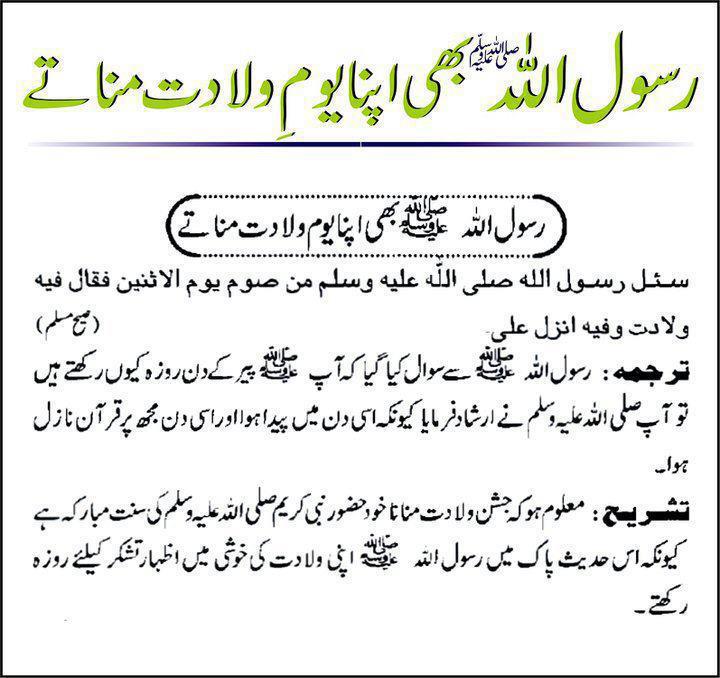 رسول اللہ ﷺ بھی اپنا یومِ ولادت مناتے
رسول اللہ ﷺ بھی اپنا یوم ولادت مناتے
سئل رسول الله صلى اللّٰه عليه وسلم من صوم يوم الاثنين فقال فيه
ولادت وفيه انزل على۔ (صحیح مسلم)
ترجمہ: رسول اللہ ﷺ سے سوال کیا گیا کہ آپ ﷺ پیر کے دن روزہ کیوں رکھتے ہیں
تو آپ صلی اللہ علیہ وسلم نے ارشاد فرمایا کیونکہ اسی دن میں پیدا ہوا اور اسی دن مجھ پر قرآن نازل
ہوا۔
تشریح: معلوم ہو کہ جشن ولادت منانا خود حضور نبی کریم صلی اللہ علیہ وسلم کی سنت مبارکہ ہے
کیونکہ اس حدیث پاک میں رسول اللہ ﷺ اپنی ولادت کی خوشی میں اظہار تشکر کیلئے روزہ
رکھتے۔